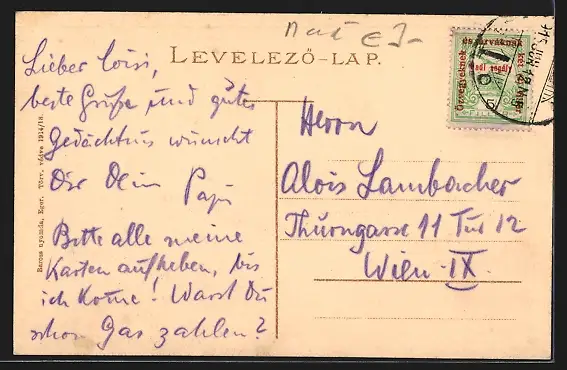 Mat € 3-
LEVELEZŐ-LAP.
Lieber Loisi,
beste Grüße und gutes
Gedächtnis wünscht
Dir Dein Papi
Bitte alle meine
Karten aufheben, bis
ich komme! Warst Du
schon Gas zahlen?
Barcsa nyomda, Eger. Törv. védve 1914/18.
Herrn
Alois Lambacher
Thurngasse 11 Tür 12
Wien IX.
Özvegyeknek
és árváknak
két (2) fillér
Hadi segély
5
FILLÉR